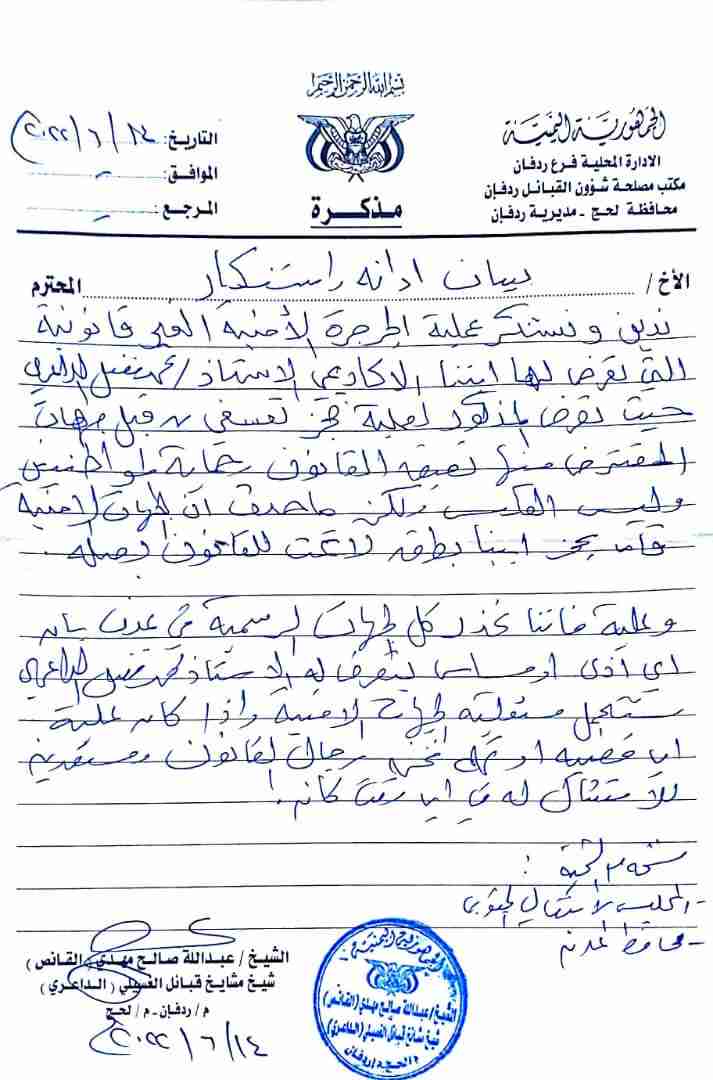 بسم الله الرحمن الرحيم
الجمهورية اليمنية
الادارة المحلية فرع ردفان
مكتب مصلحة شؤون القبائل ردفان
محافظة لحج - مديرية ردفان
مذكرة
التاريخ: ٢٠٢٢/٦/١٤
الموافق:
المرجع:
الأخ / بيان ادانه واستنكار المحترم
ندين ونستنكر عملية الأمنية الغير قانونية
التي تعرض لها ابننا الاكاديمي الاستاذ / محمد فضل الداعري
حيث تعرض المذكور لعملية حجز تعسفي من قبل جهات
المفترض منها تطبيق القانون وحماية المواطنين
وليس العكس ولكن ماحدث ان الجهات الامنية
قامت بحجز ابننا بطرقه لاتمت للقانون بصله.
وعليه فاننا نحذر كل الجهات الرسمية في عدن بان
اي أذى او مساس يتعرض له الاستاذ محمد فضل الداعري
ستتحمل مسئوليته الجهات الامنية واذا كان عليه
اي قضيه او نحن رجال القانون ومستعدين
للامتثال له في اي وقت كان.
نسخه مع التحية :
- المجلس الانتقالي الجنوبي
- محافظ عدن
الشيخ / عبدالله صالح مهدي ( القانص )
شيخ مشايخ قبائل الغسيلي ( الداعري )
م / ردفان - م / لحج
٢٠٢٢/٦/١٤
الجمهورية اليمنية
الشيخ / عبدالله صالح مهدي (القانص)
شيخ مشائخ قبائل الغسيلي (الداعري)